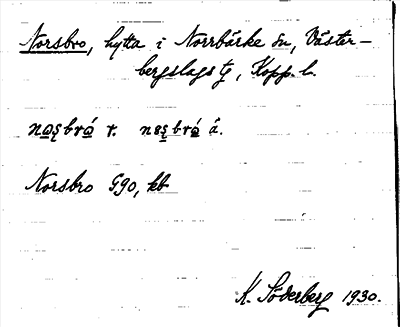 Norsbro, hytta i Norrbärke sn, Väster-
bergslags tg, Kopp. l.
Norsbro G90, kb
K. Söderberg 1930.